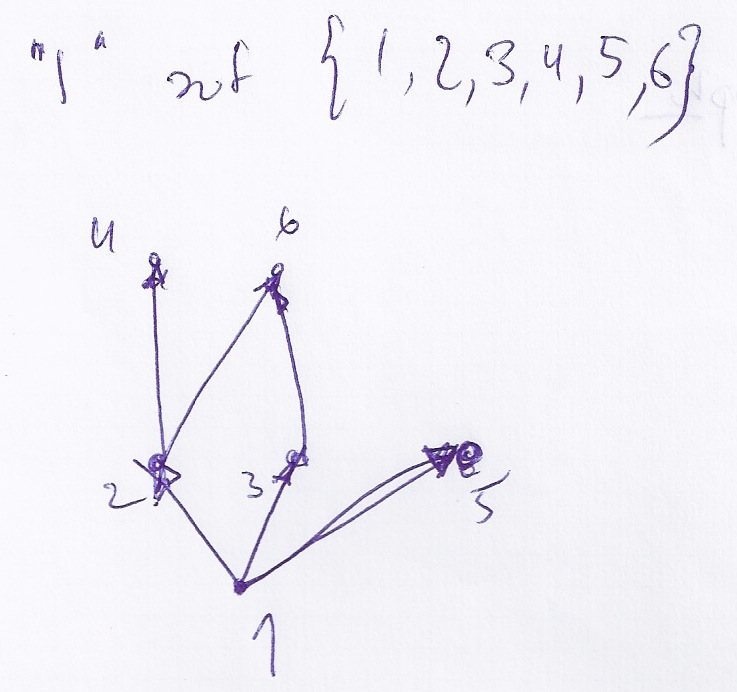 "|" {1,2,3,4,5,6}
4 6
2 3 5
1